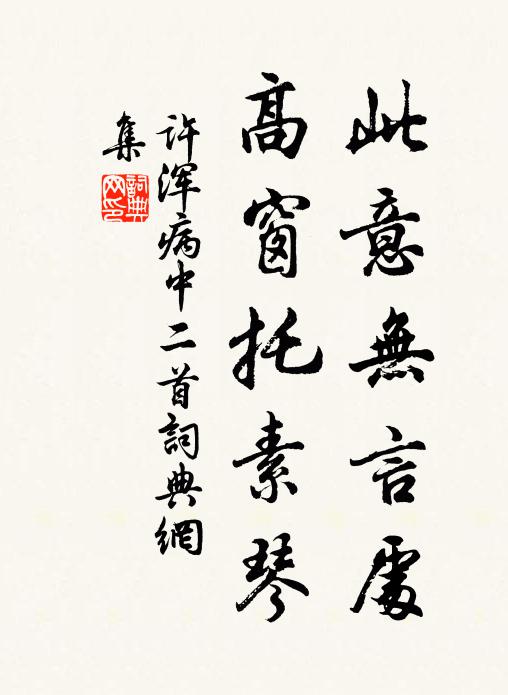 此意無言處
高窗托素琴
许浑病中二首詞典網
集
詞典网印